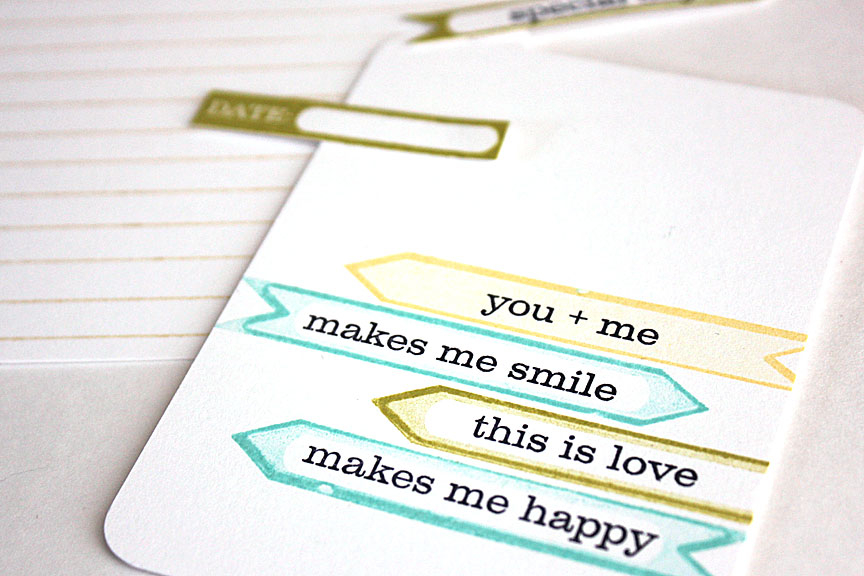 special
DATE:
you + me
makes me smile
this is love
makes me happy